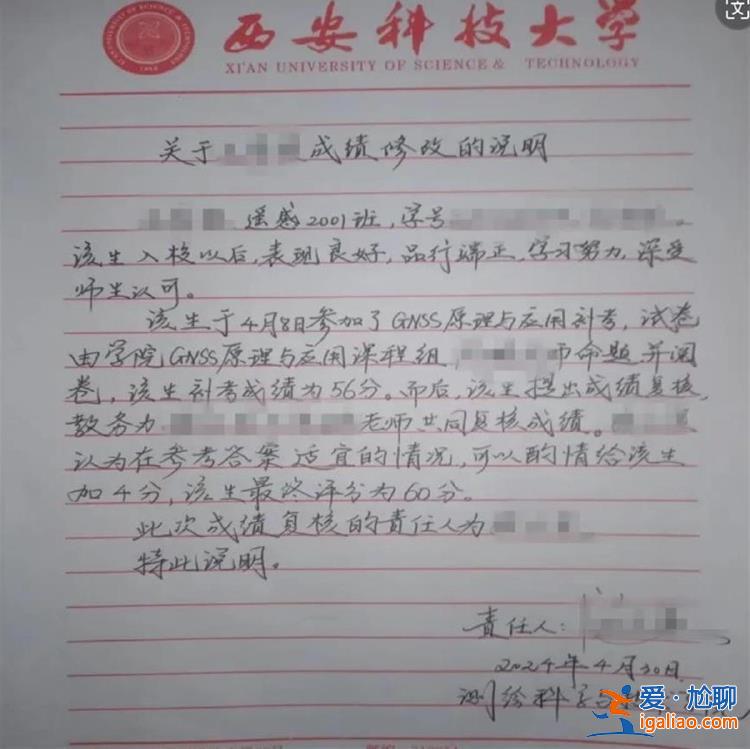 西安科技大学
XI'AN UNIVERSITY OF SCIENCE & TECHNOLOGY
关于 成绩修改的说明
遥感2001班,学号
该生入校以后,表现良好,品行端正,学习努力,深受
师生认可。
该生于4月8日参加了GNSS原理与应用补考,试卷
由学院GNSS原理与应用课程组, 命题并阅
卷,该生补考成绩为56分。而后,该生提出成绩复核,
教务为 老师共同复核成绩。
认为在参考答案适宜的情况,可以酌情给该生
加4分,该生最终评分为60分。
此次成绩复核的责任人为
特此说明。
责任人:
2024年4月30日
测绘科学与
爱·尬聊
igaliao.com